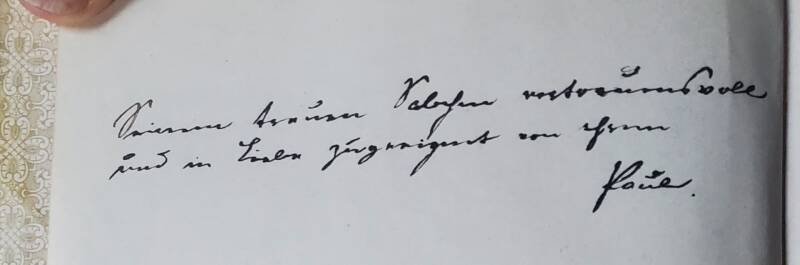 Seinem treuen Salchen vertrauensvoll
und in Liebe zugeeignet von ihrem
Paul.